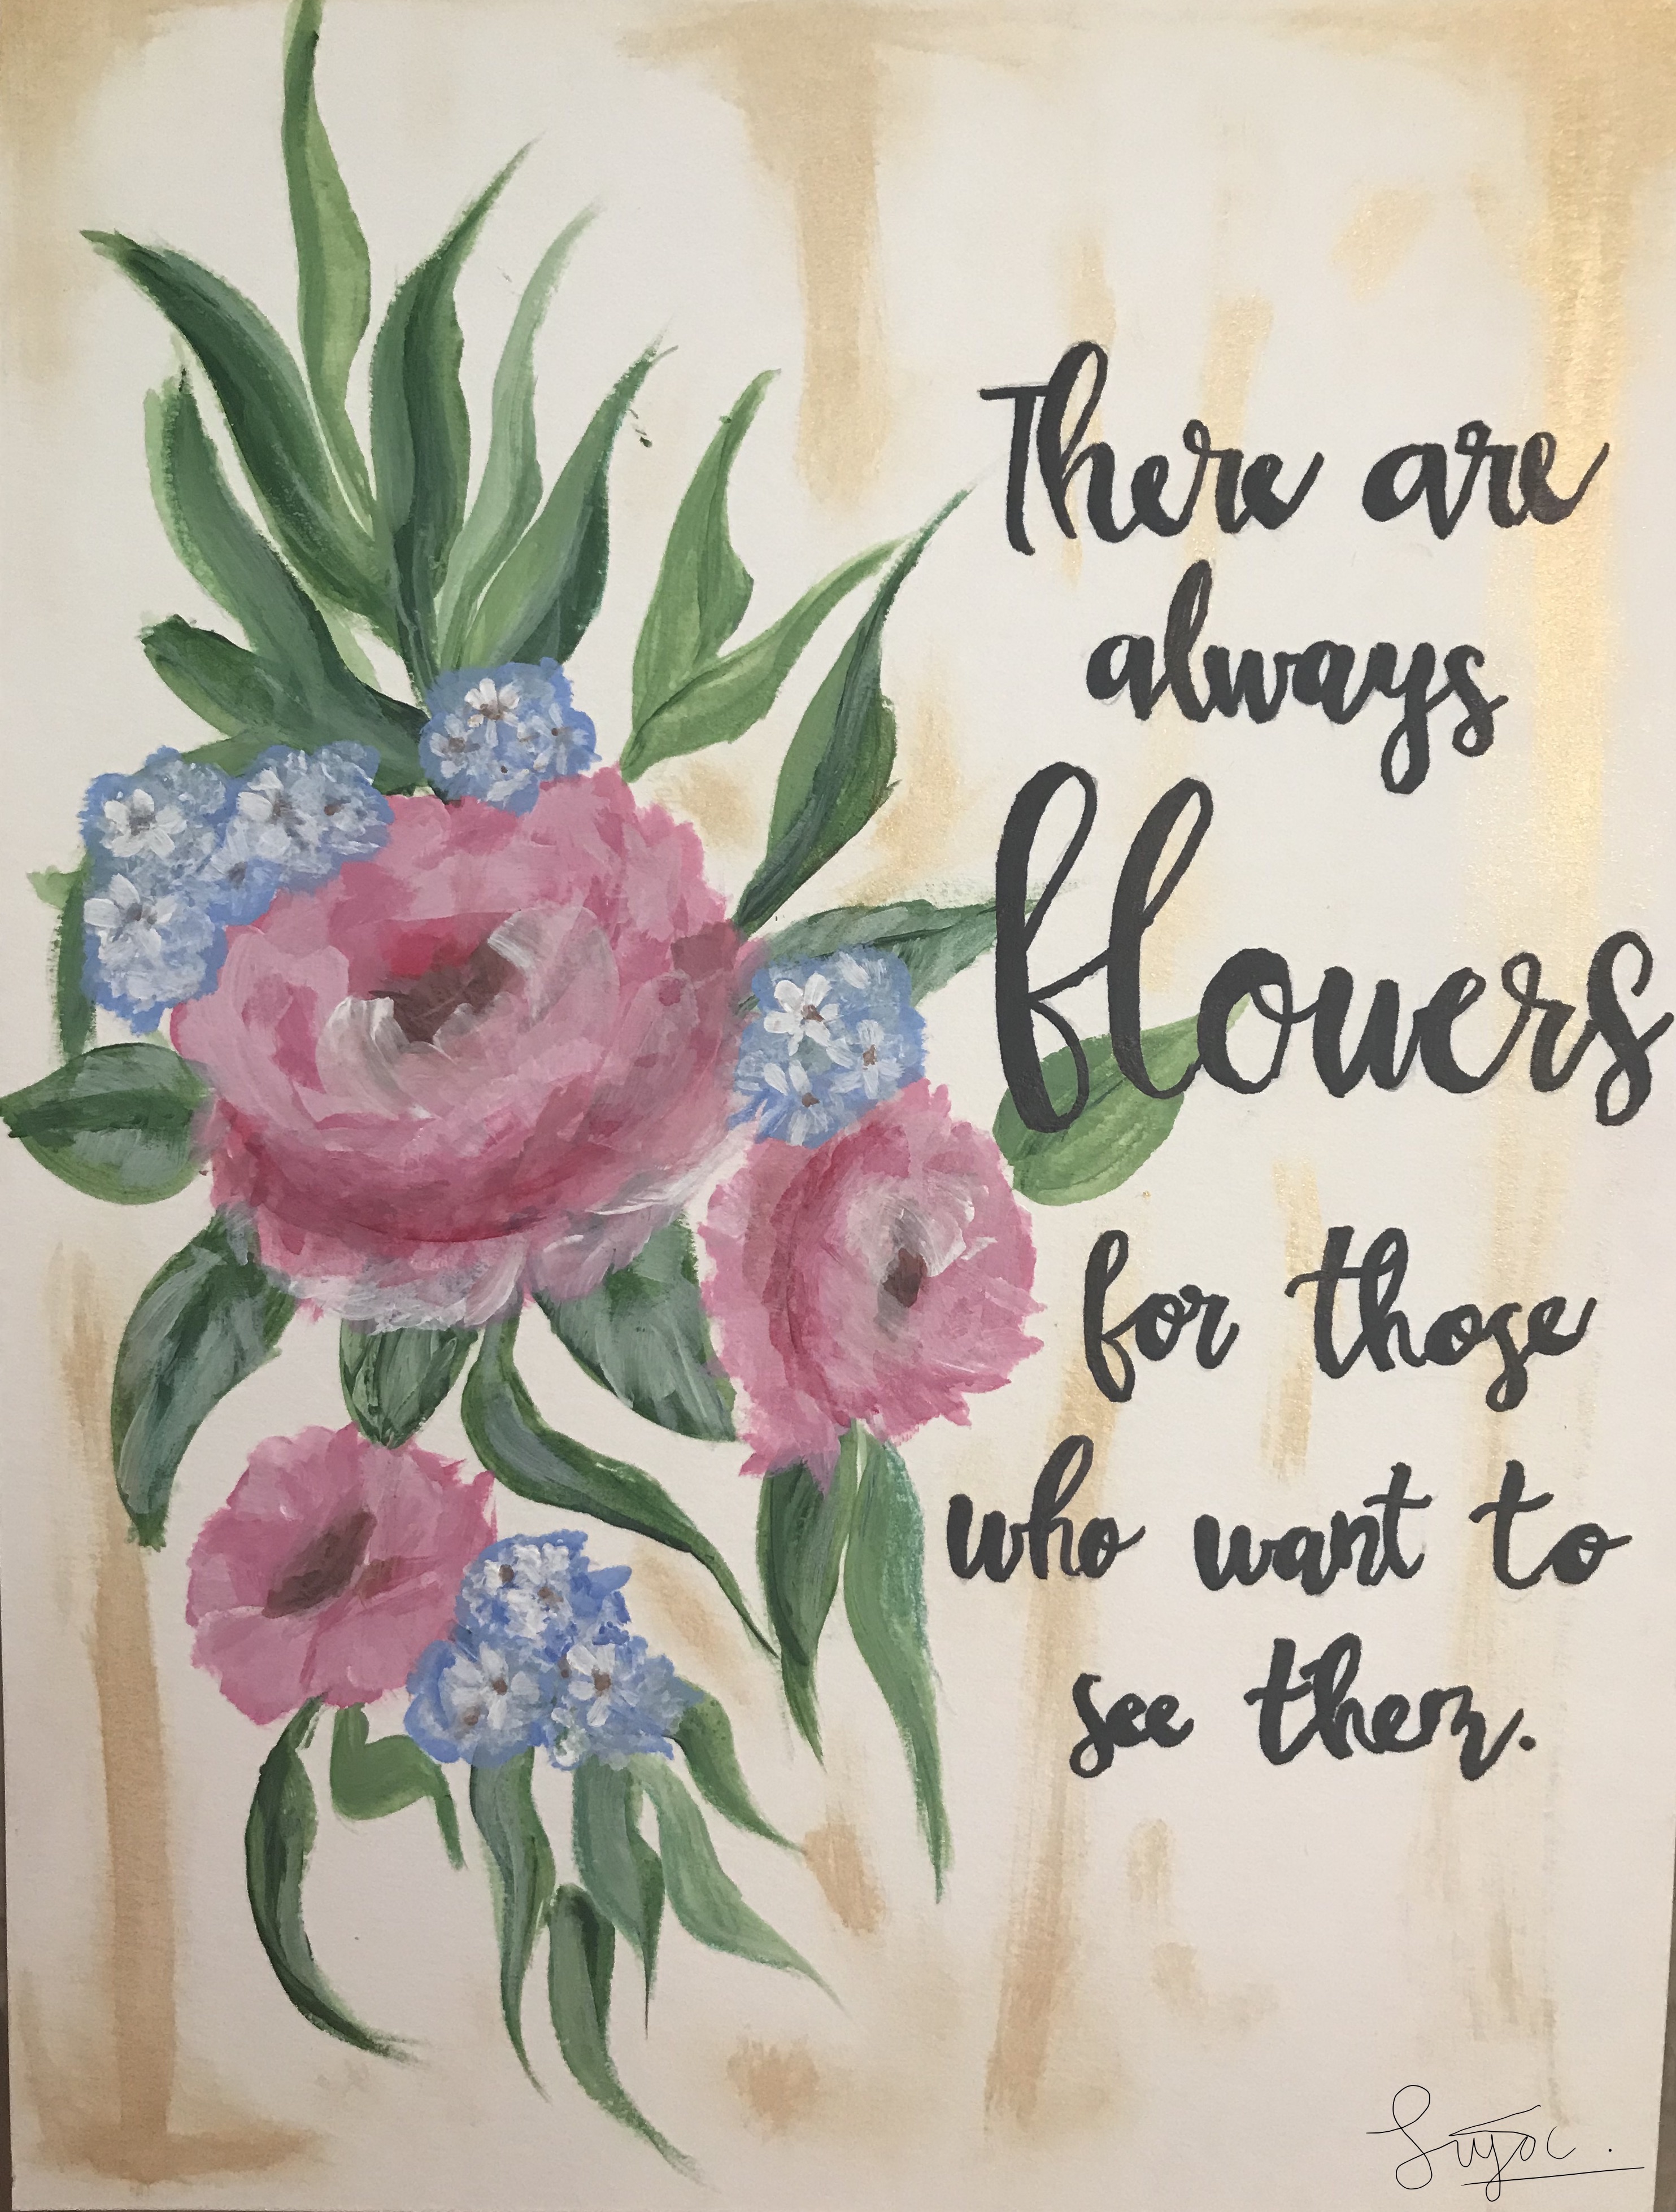 There are
always
flowers
for those
who want to
see them.